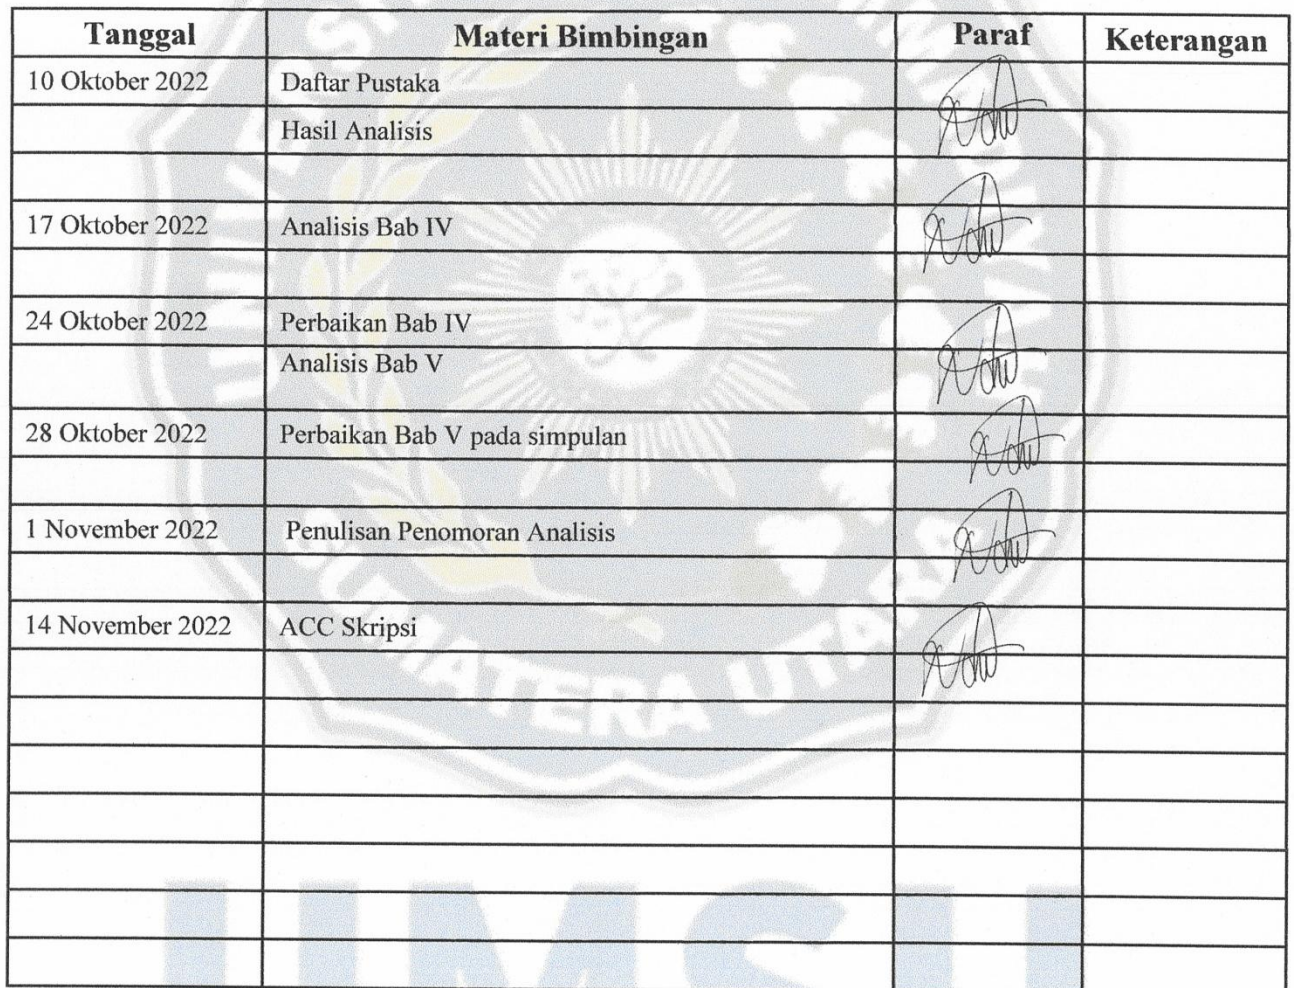 Tanggal Materi Bimbingan Paraf Keterangan
10 Oktober 2022 Daftar Pustaka
Hasil Analisis
17 Oktober 2022 Analisis Bab IV
24 Oktober 2022 Perbaikan Bab IV
Analisis Bab V
28 Oktober 2022 Perbaikan Bab V pada simpulan
1 November 2022 Penulisan Penomoran Analisis
14 November 2022 ACC Skripsi
SUMATERA UTARA
UMSU